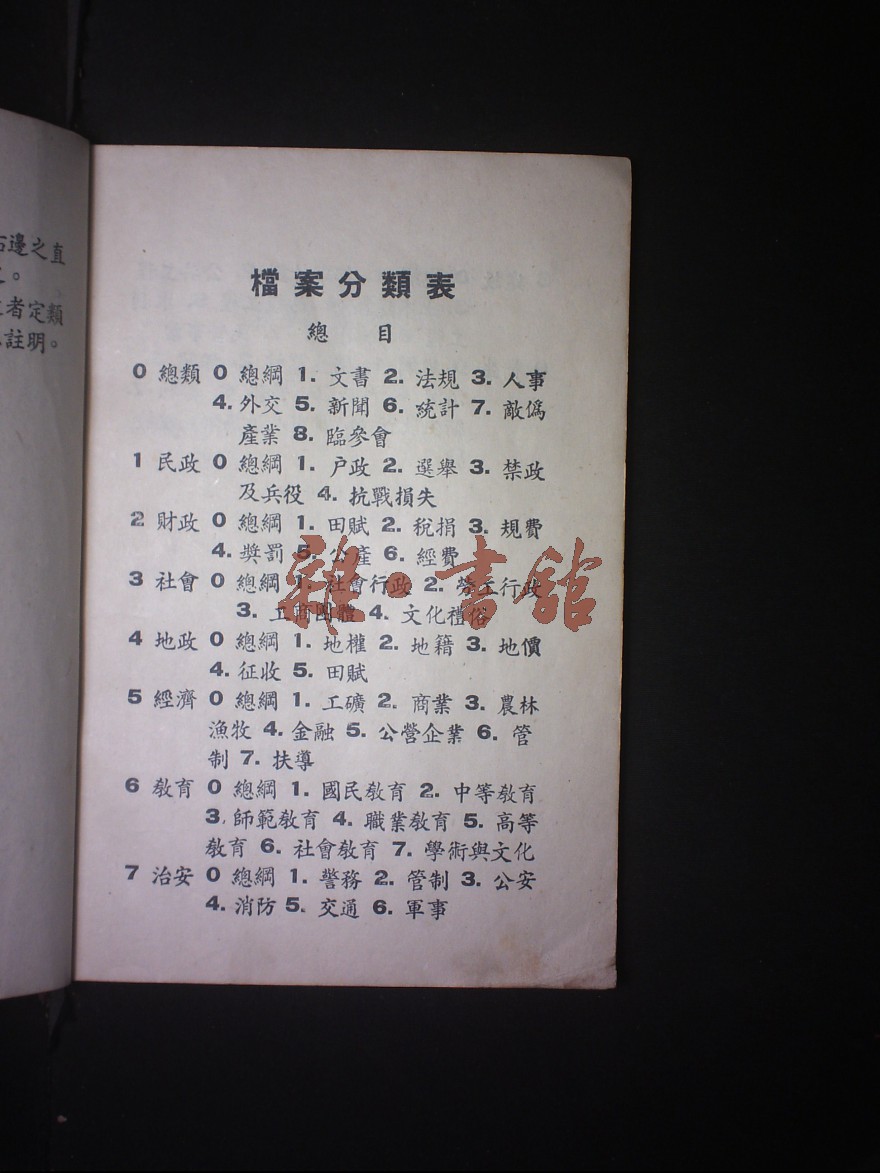 右邊之直
者定類
註明。
檔案分類表
總 目
0 總類 0 總綱 1. 文書 2. 法規 3. 人事
4. 外交 5. 新聞 6. 統計 7. 敵僞
產業 8. 臨參會
1 民政 0 總綱 1. 戶政 2. 選舉 3. 禁政
及兵役 4. 抗戰損失
2 財政 0 總綱 1. 田賦 2. 稅捐 3. 規費
4. 獎罰 5. 公產 6. 經費
3 社會 0 總綱 1. 社會行政 2. 勞工行政
3. 工商團體 4. 文化禮俗
4 地政 0 總綱 1. 地權 2. 地籍 3. 地價
4. 征收 5. 田賦
5 經濟 0 總綱 1. 工礦 2. 商業 3. 農林
漁牧 4. 金融 5. 公營企業 6. 管
制 7. 扶導
6 教育 0 總綱 1. 國民教育 2. 中等教育
3. 師範教育 4. 職業教育 5. 高等
教育 6. 社會教育 7. 學術與文化
7 治安 0 總綱 1. 警務 2. 管制 3. 公安
4. 消防 5. 交通 6. 軍事
雜·書館